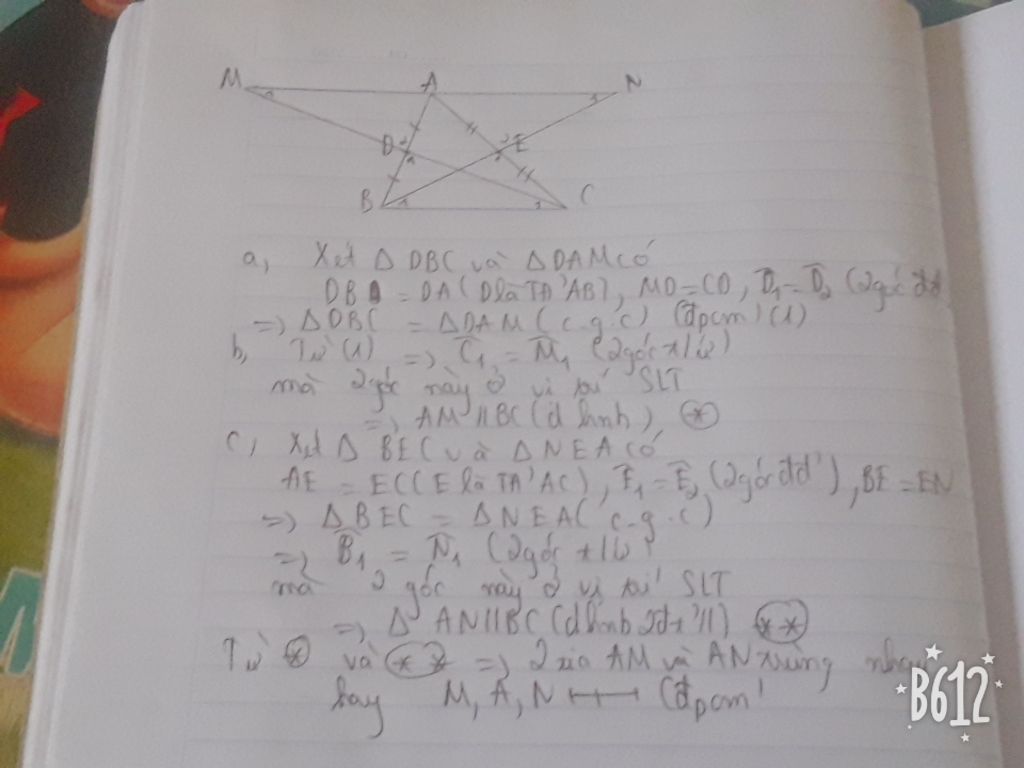 M A N
D E
B C
a, Xét Δ DBC và Δ DAM có
DB = DA (D là TĐ' AB), MD = CD, D̂₁ = D̂₂ (2 góc đđ
=> Δ DBC = Δ DAM (c.g.c) (đpcm) (1)
b, Từ (1) => Ĉ₁ = M̂₁ (2 góc t/ứ)
mà 2 góc này ở vị trí SLT
=> AM // BC (d hnb) (*)
c, Xét Δ BEC và Δ NEA có
AE = EC (E là TĐ' AC), Ê₁ = Ê₂ (2 góc đđ'), BE = EN
=> Δ BEC = Δ NEA (c.g.c)
=> B̂₁ = N̂₁ (2 góc t/ứ)
mà 2 góc này ở vị trí SLT
=> Δ AN // BC (d hnb 2đt'//) (**)
Từ (*) và (**) => 2 tia AM và AN trùng nhau
hay M, A, N (đpcm'
B612